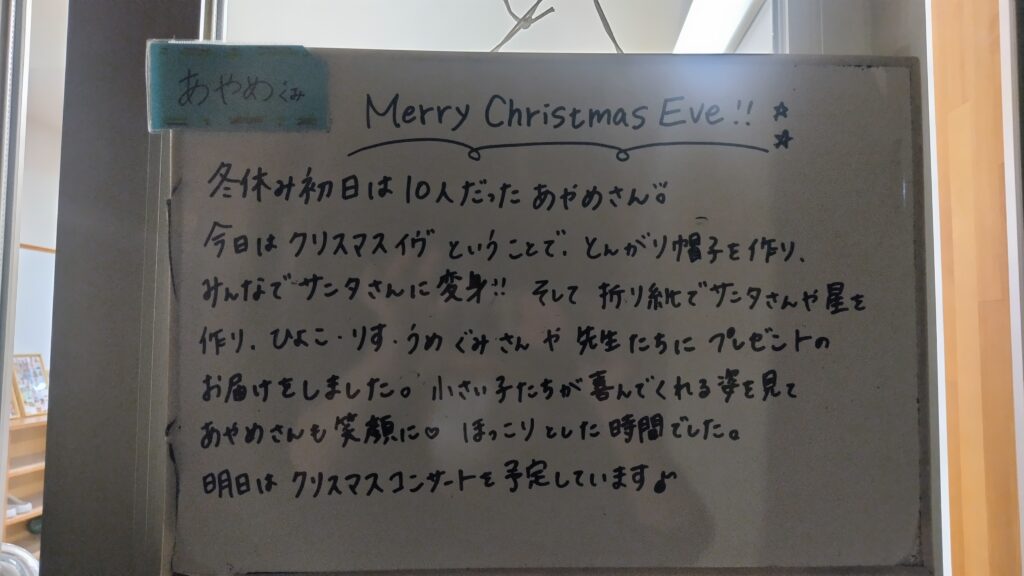 あやめぐみ
Merry Christmas Eve!!☆☆
冬休み初日は10人だったあやめさん
今日はクリスマスイヴということで、とんがり帽子を作り、
みんなでサンタさんに変身!! そして 折り紙でサンタさんや星を
作り、ひよこ・りす・うめぐみさんや先生たちにプレゼントの
お届けをしました。小さい子たちが喜んでくれる姿を見て
あやめさんも笑顔に♡ ほっこりとした時間でした。
明日はクリスマスコンサートを予定しています♪